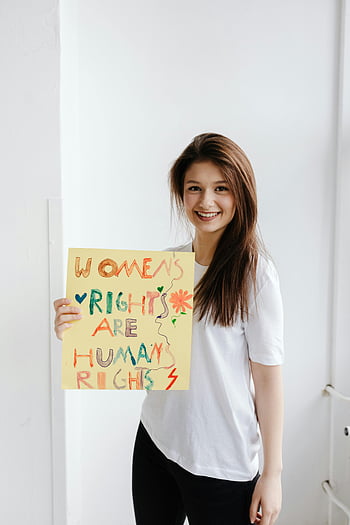 WOMEN'S
RIGHTS
ARE
HUMAN
RIGHTS